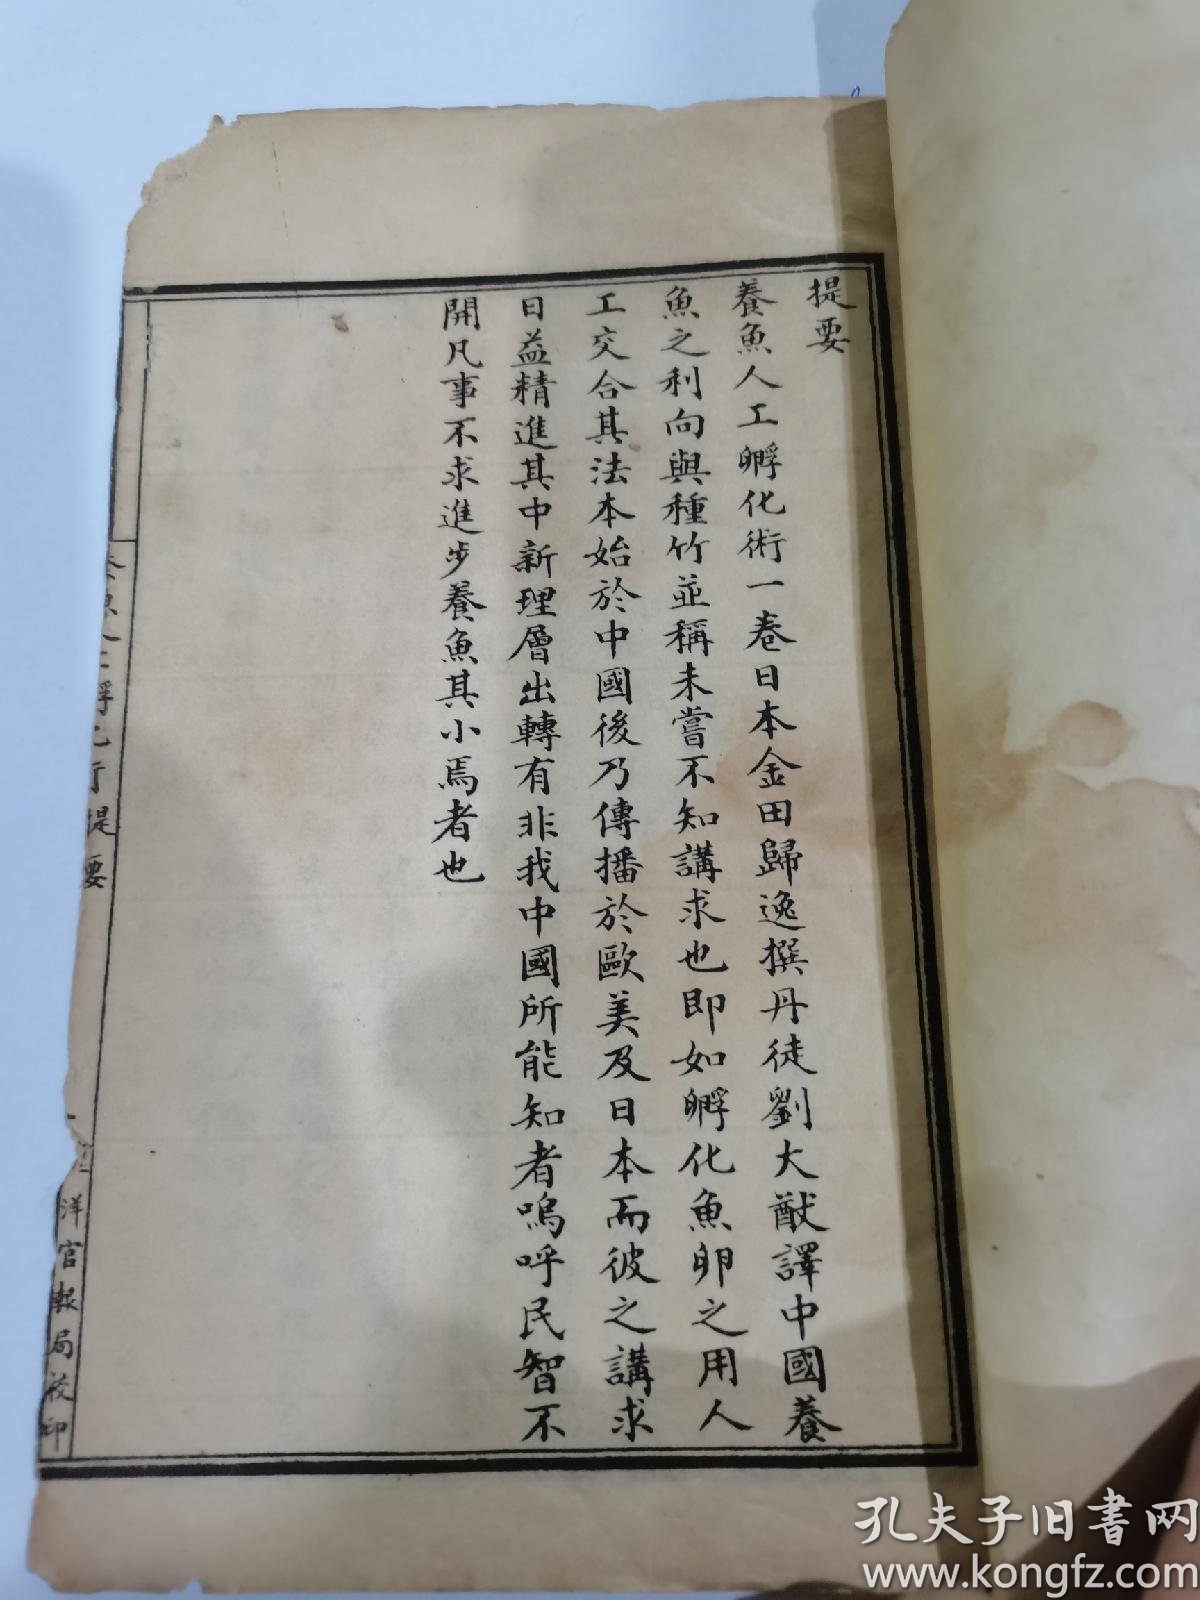 提要
養魚人工孵化術一卷日本金田歸逸撰丹徒劉大猷譯中國養
魚之利向與種竹並稱未嘗不知講求也即如孵化魚卵之用人
工交合其法本始於中國後乃傳播於歐美及日本而彼之講求
日益精進其中新理層出轉有非我中國所能知者嗚呼民智不
開凡事不求進步養魚其小焉者也
提要
洋官報局校印
孔夫子旧书网
www.kongfz.com